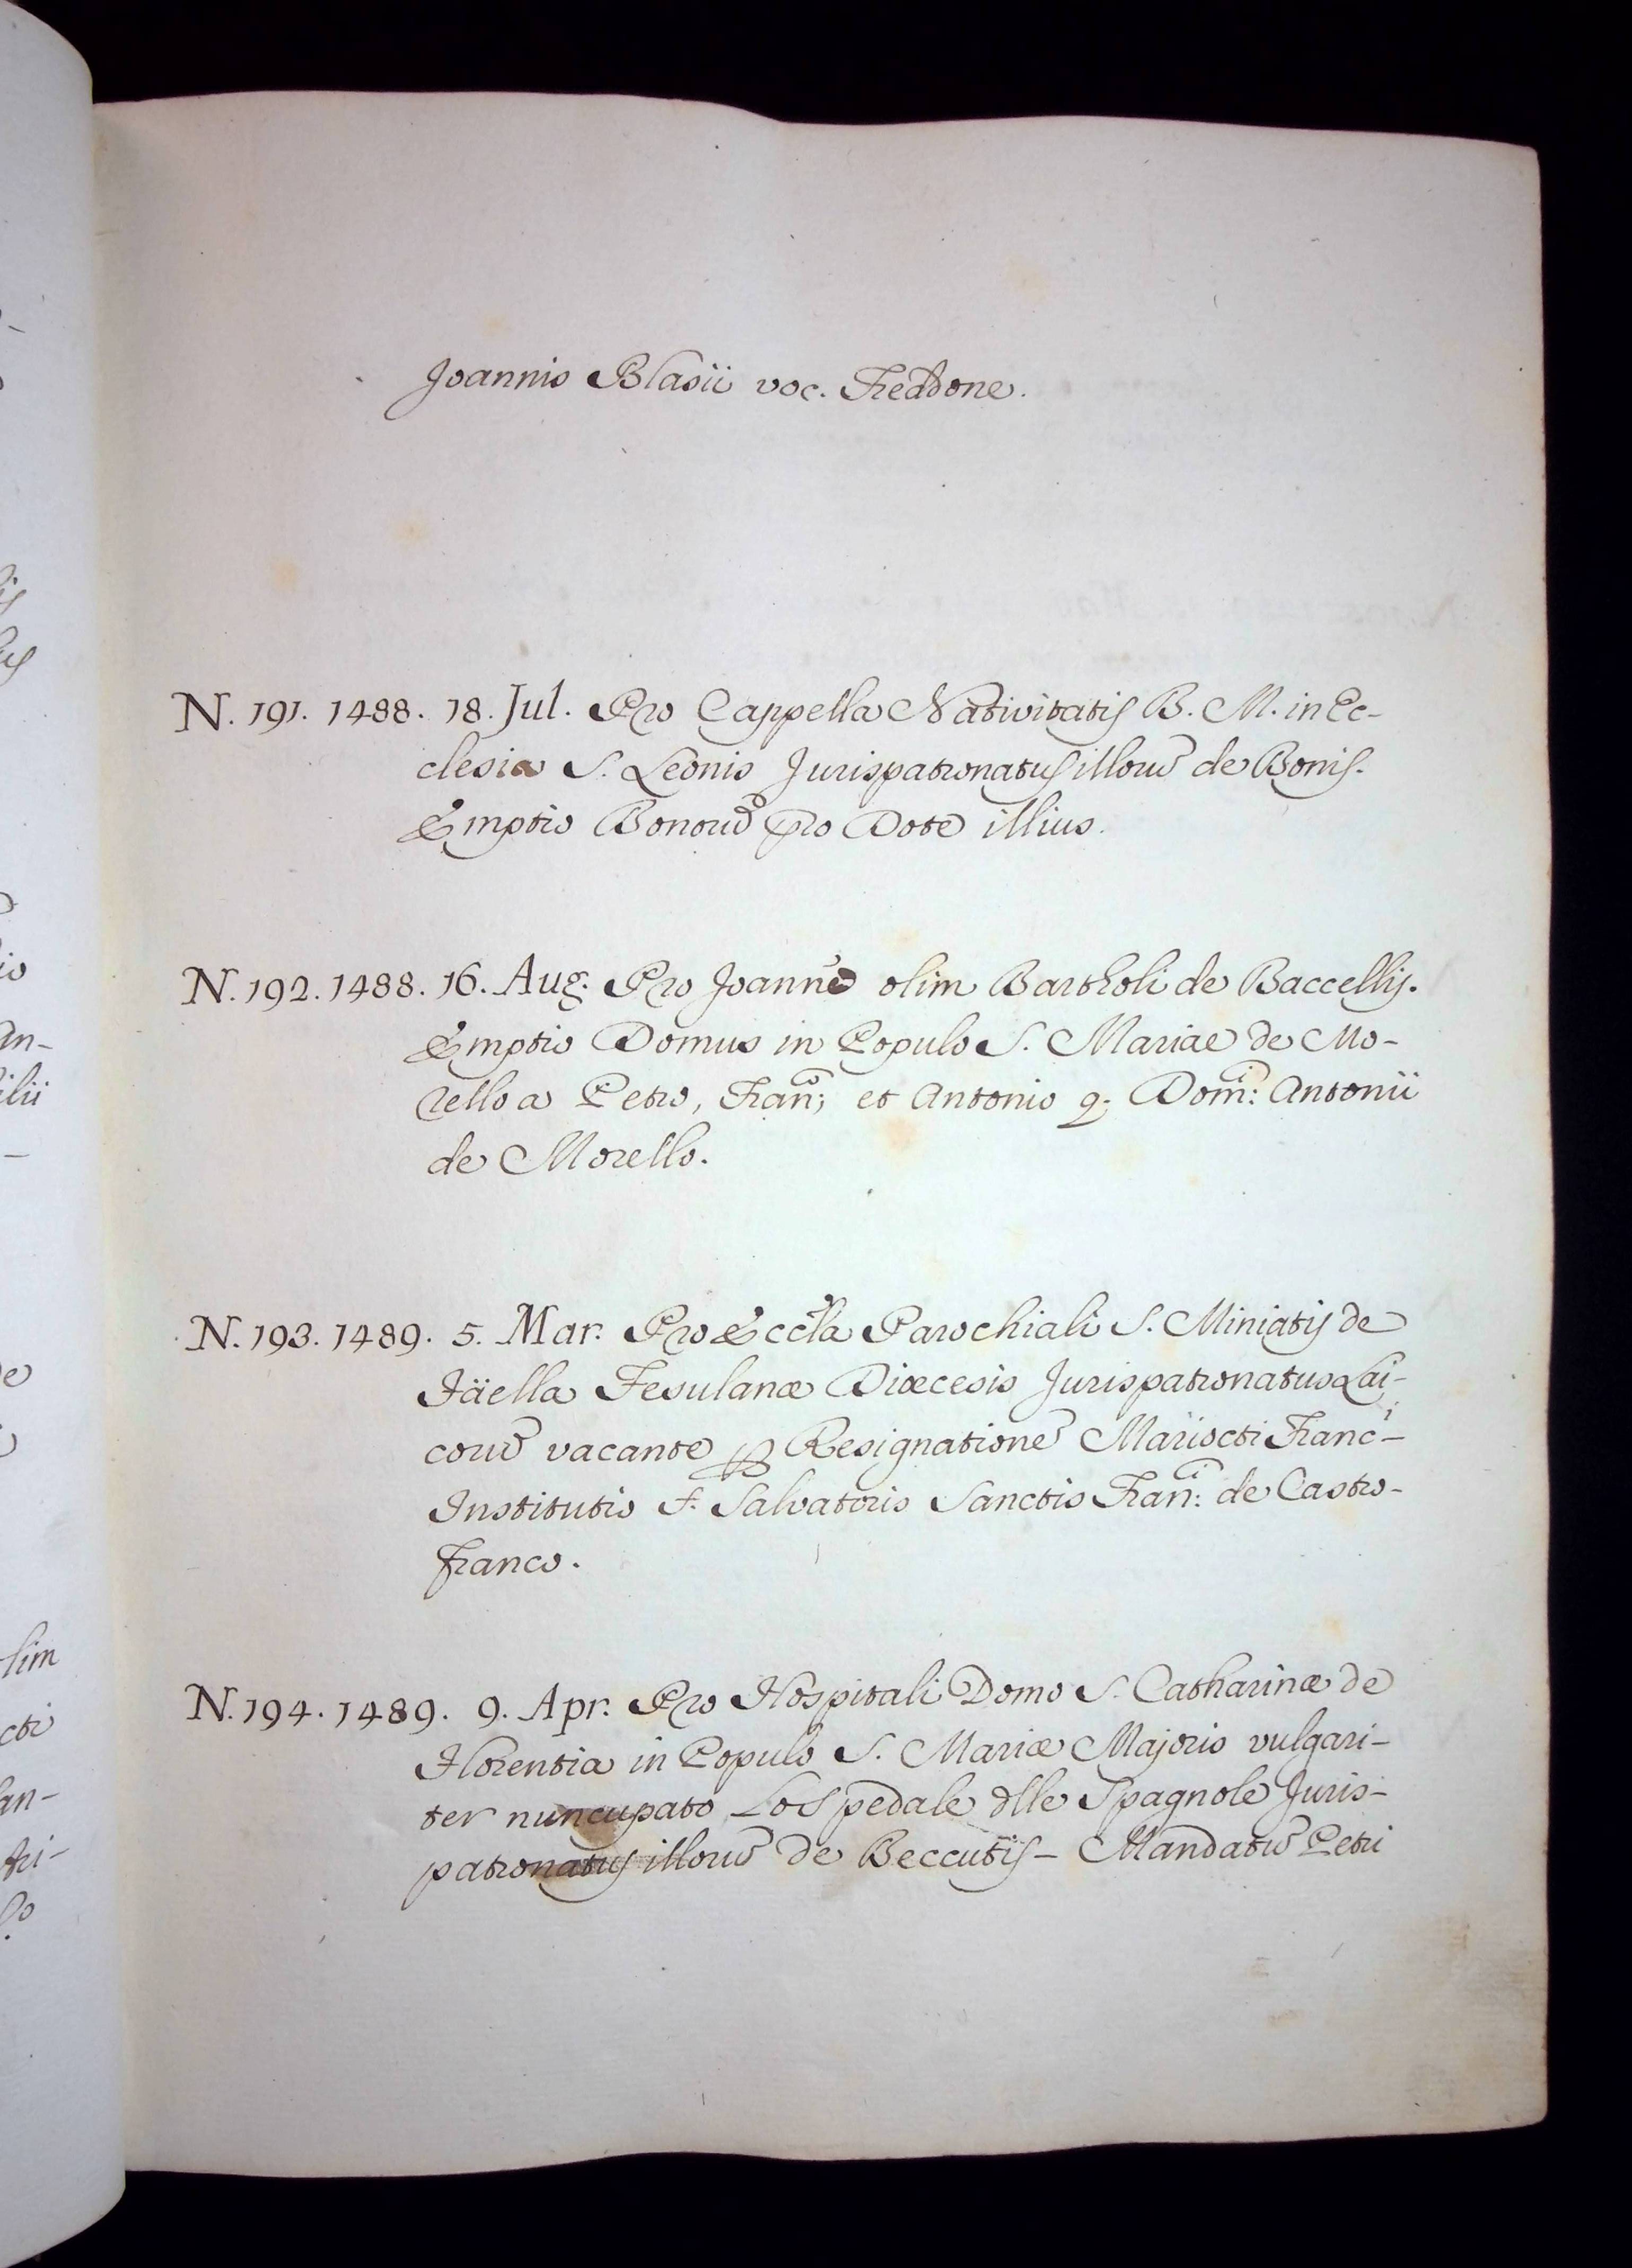 Joannis Blasii voc. Freddone.
N. 191. 1488. 18. Jul. Pro Cappella Nativitatis B. M. in Ec-
clesia S. Leonis Jurispatronatus illorũ de Bonis.
Emptio Bonorũ pro Dote illius.
N. 192. 1488. 16. Aug. Pro Joanne olim Bartholi de Baccellis.
Emptio Domus in Populo S. Mariae de Mo-
rello a Petro, Fran; et Antonio q; Dom: Antonii
de Morello.
N. 193. 1489. 5. Mar. Pro Eccla Parochiali S. Miniatis de
Fäella Fesulanæ Diœcesis Jurispatronatus Lai-
corũ vacante ꝑ Resignationẽ Mariocti Franci-
Institutio f. Salvatoris Sanctis Frani: de Castro-
franco.
N. 194. 1489. 9. Apr. Pro Hospitali Domo S. Catharinæ de
Florentia in Populo S. Mariæ Majoris vulgari-
ter nuncupato Lo Spedale dlle Spagnole Juris-
patronatus illorũ de Beccutis - Mandatũ Petri
an-
ilii
lim
cti
an-